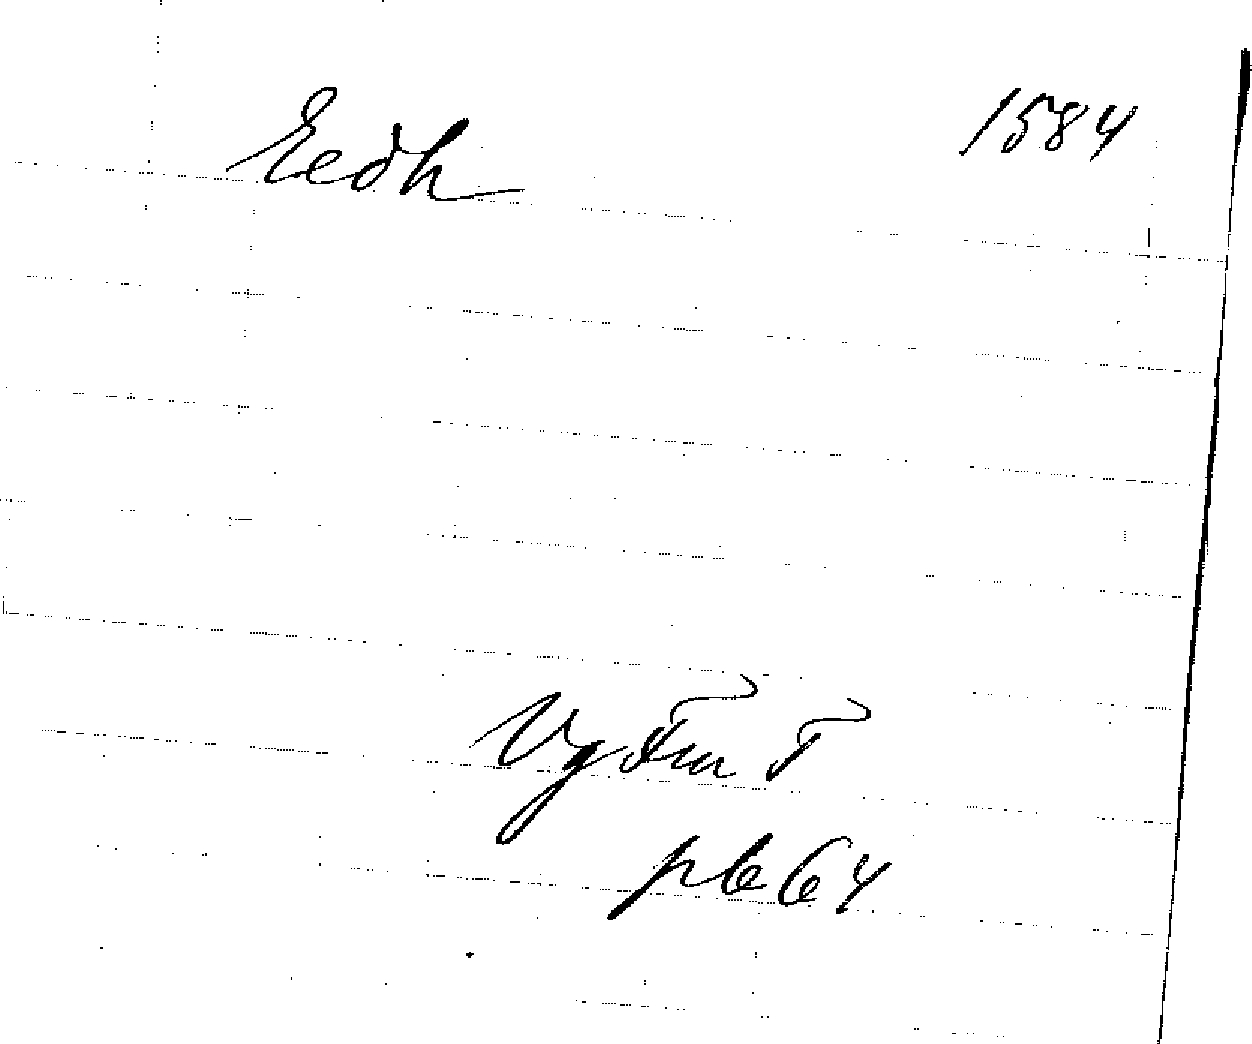 Eedh 1584
Vg Fm T
pb 64